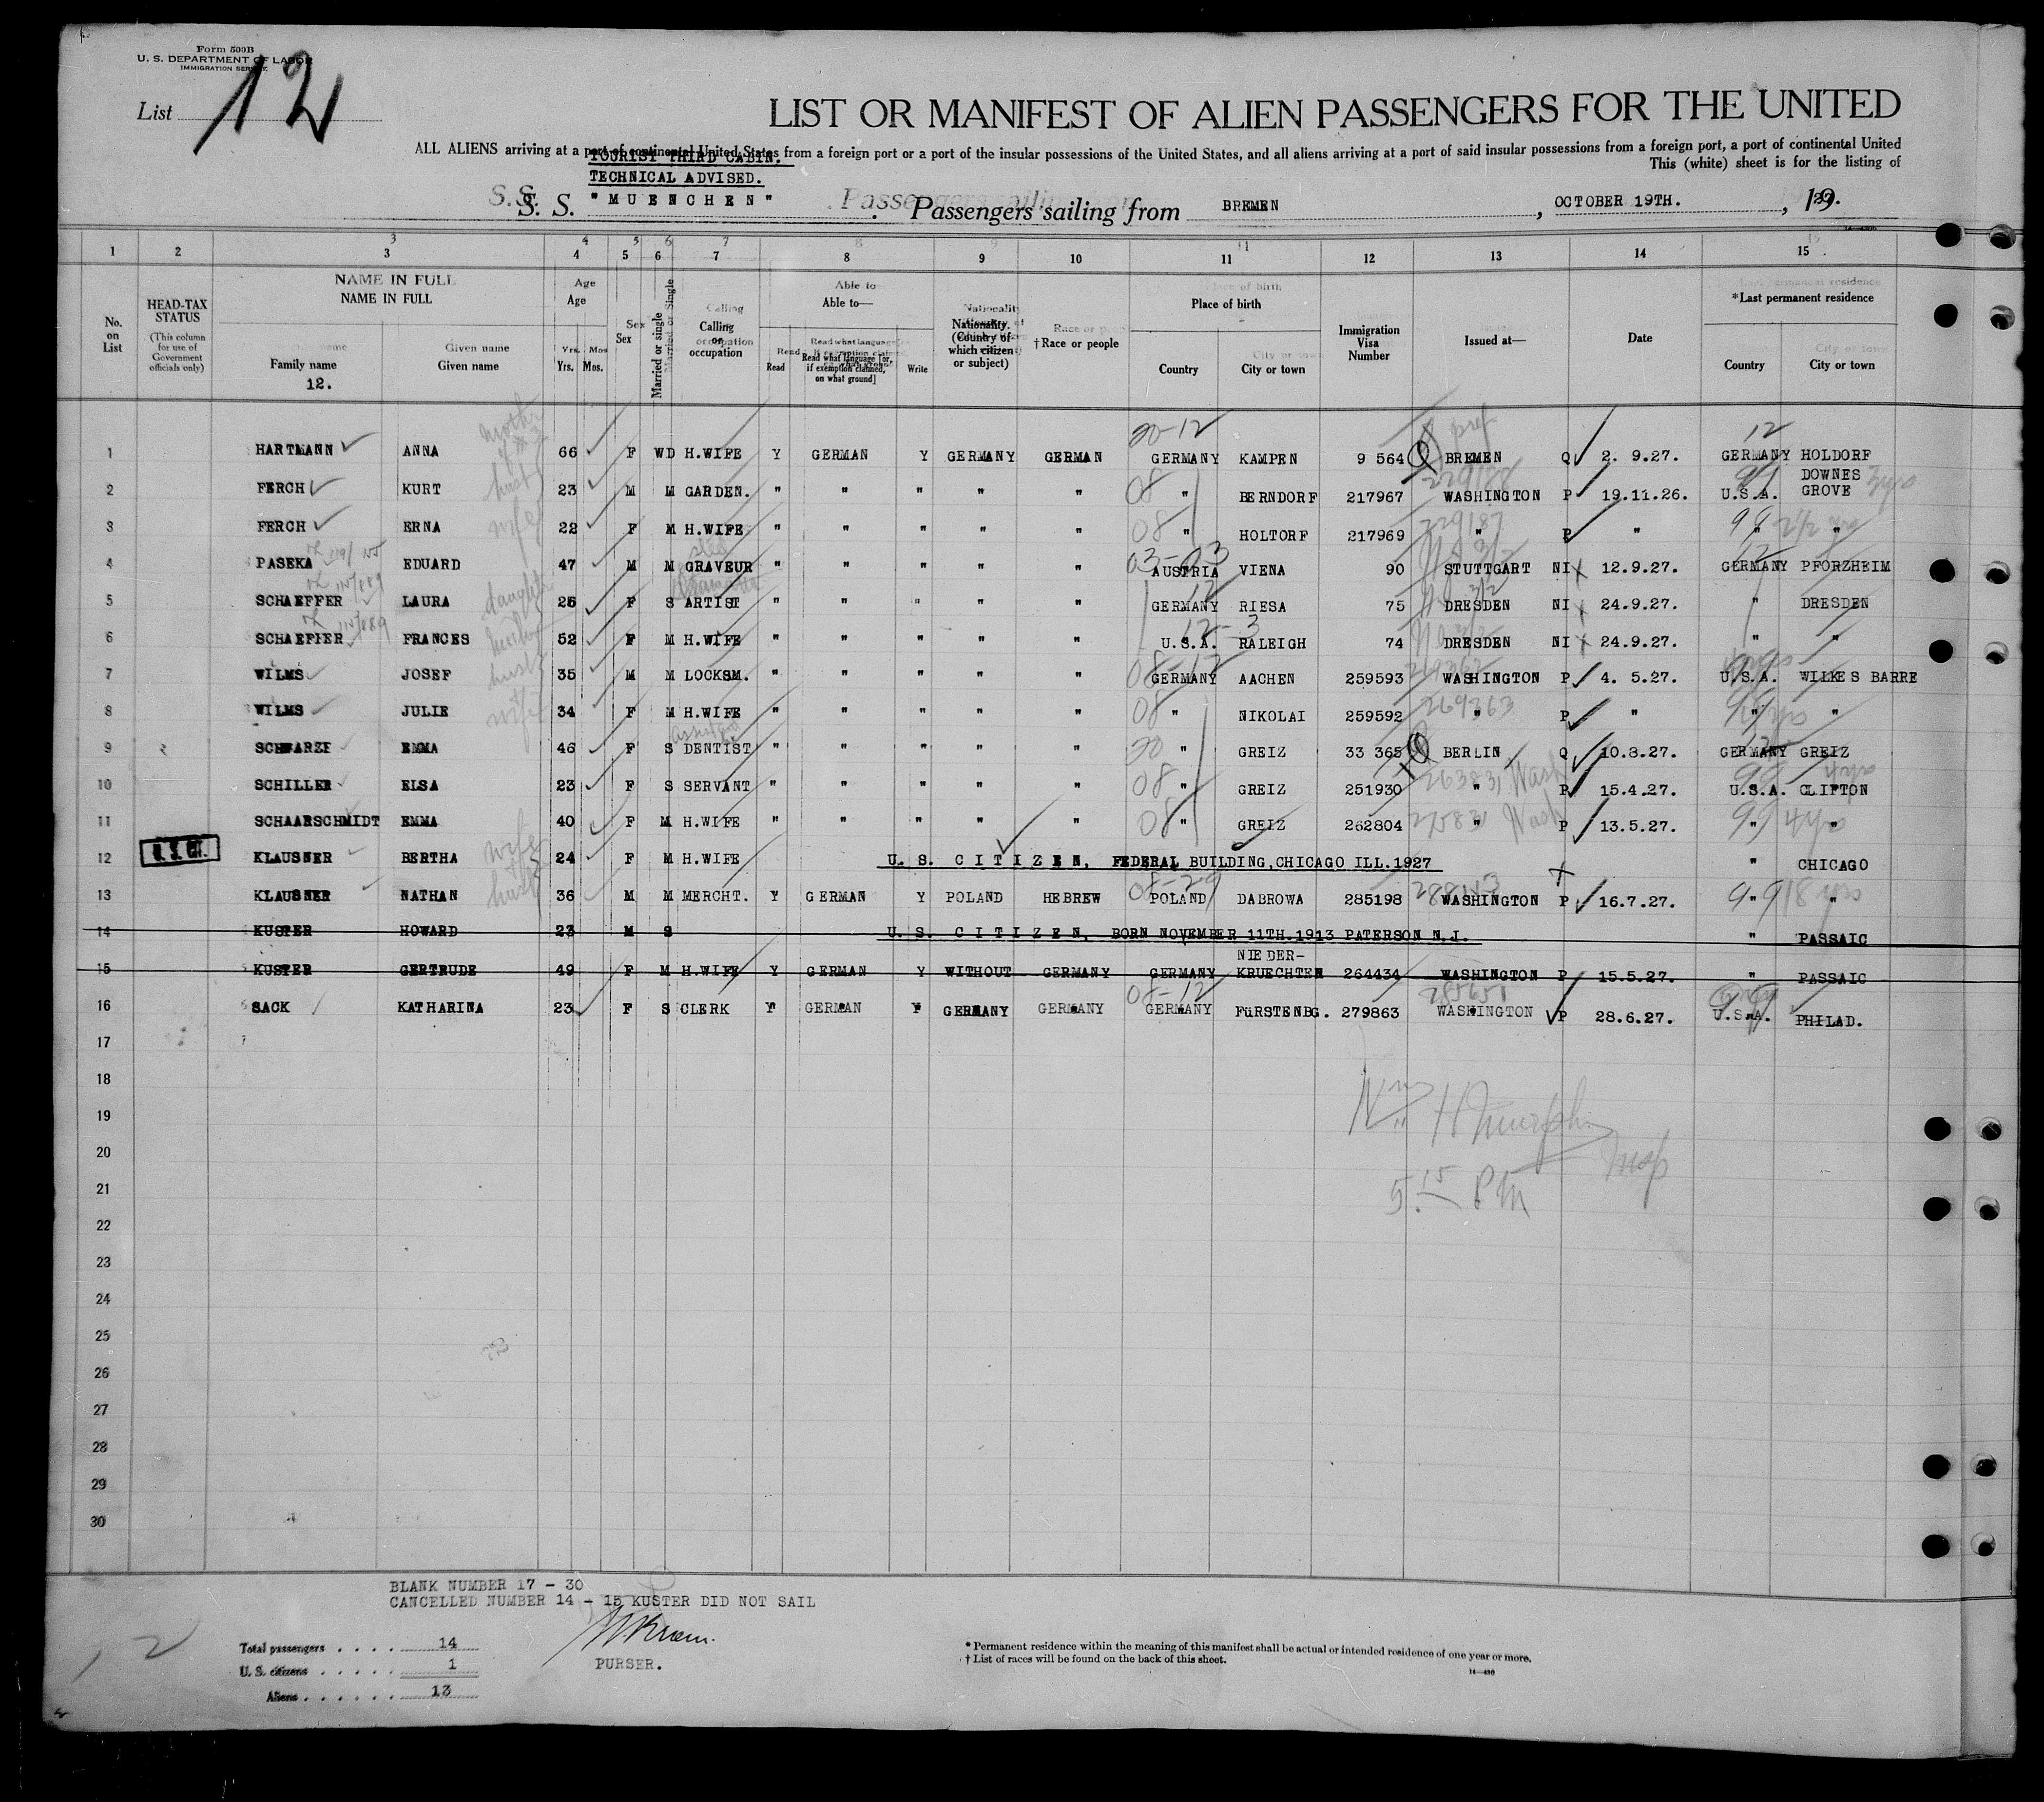 Form 500B
U. S. DEPARTMENT OF LABOR
IMMIGRATION SERVICE
List 12
LIST OR MANIFEST OF ALIEN PASSENGERS FOR THE UNITED
ALL ALIENS arriving at a port of continental United States from a foreign port or a port of the insular possessions of the United States, and all aliens arriving at a port of said insular possessions from a foreign port, a port of continental United
This (white) sheet is for the listing of
TOURIST THIRD CABIN.
TECHNICAL ADVISED.
S. S. "MUENCHEN" Passengers sailing from BREMEN, OCTOBER 19TH., 19
1 2 3 4 5 6 7 8 9 10 11 12 13 14 15
No. on List
HEAD-TAX STATUS
(This column for use of Government officials only)
NAME IN FULL
Family name
12.
Given name
Age
Yrs. Mos.
Sex
Married or single
Calling or occupation
Able to—
Read
Read what language [or, if exemption claimed, on what ground]
Write
Nationality. (Country of which citizen or subject)
†Race or people
Place of birth
Country
City or town
Immigration Visa Number
Issued at—
Date
*Last permanent residence
Country
City or town
1 HARTMANN ANNA mother 66 F WD H.WIFE Y GERMAN Y GERMANY GERMAN 20-12 GERMANY KAMPEN 9 564 Q BREMEN Q 2. 9.27. 12 GERMANY HOLDORF
2 FERCH KURT husb 23 M M GARDEN. " " " " " 08 " BERNDORF 217967 229188 WASHINGTON P 19.11.26. 99 U.S.A. DOWNES GROVE
3 FERCH ERNA wife 22 F M H.WIFE " " " " " 08 " HOLTORF 217969 229187 " P " 99 " "
4 PASEKA EDUARD 47 M M steel GRAVEUR " " " " " 03-03 AUSTRIA VIENA 90 STUTTGART NI 12.9.27. 12 GERMANY PFORZHEIM
5 SCHAEFFER LAURA daughter 25 F S ARTIST " " " " " 12 GERMANY RIESA 75 DRESDEN NI 24.9.27. " DRESDEN
6 SCHAEFFER FRANCES mother 52 F M H.WIFE " " " " " 12-3 U.S.A. RALEIGH 74 DRESDEN NI 24.9.27. " "
7 WILMS JOSEF husb 35 M M LOCKSM. " " " " " 08-12 GERMANY AACHEN 259593 269362 WASHINGTON P 4. 5.27. U.S.A. WILKES BARRE
8 WILMS JULIE wife 34 F M H.WIFE " " " " " 08 " NIKOLAI 259592 269363 " P " " "
9 SCHWARZE EMMA 46 F S DENTIST " " " " " 20 " GREIZ 33 365 Q BERLIN Q 10.8.27. 12 GERMANY GREIZ
10 SCHILLER ELSA 23 F S SERVANT " " " " " 08 " GREIZ 251930 263831 Wash " P 15.4.27. 99 U.S.A. CLIFTON
11 SCHAARSCHMIDT EMMA 40 F M H.WIFE " " " " " 08 " GREIZ 262804 275831 Wash " P 13.5.27. 99 " "
12 U.S. CIT. KLAUSNER BERTHA wife 24 F M H.WIFE U. S. CITIZEN, FEDERAL BUILDING, CHICAGO ILL.1927 " CHICAGO
13 KLAUSNER NATHAN husb 36 M M MERCHT. Y GERMAN Y POLAND HEBREW 08-29 POLAND DABROWA 285198 288143 WASHINGTON P 16.7.27. 99 " "
14 KUSTER HOWARD 23 M S U. S. CITIZEN, BORN NOVEMBER 11TH.1913 PATERSON N.J. " PASSAIC
15 KUSTER GERTRUDE 49 F M H.WIFE Y GERMAN Y WITHOUT GERMANY GERMANY NIEDER-KRUECHTEN 264434 WASHINGTON P 15.5.27. " PASSAIC
16 SACK KATHARINA 23 F S CLERK Y GERMAN Y GERMANY GERMANY 08-12 GERMANY FüRSTENBG. 279863 285651 WASHINGTON P 28.6.27. U.S.A. PHILAD.
17
18
19
20
21
22
23
24
25
26
27
28
29
30
Wm H Murphy
Insp
5.15 PM
BLANK NUMBER 17 - 30
CANCELLED NUMBER 14 - 15 KUSTER DID NOT SAIL
PURSER.
12
Total passengers . . . . 14
U. S. citizens . . . . . 1
Aliens . . . . . . 13
* Permanent residence within the meaning of this manifest shall be actual or intended residence of one year or more.
† List of races will be found on the back of this sheet.